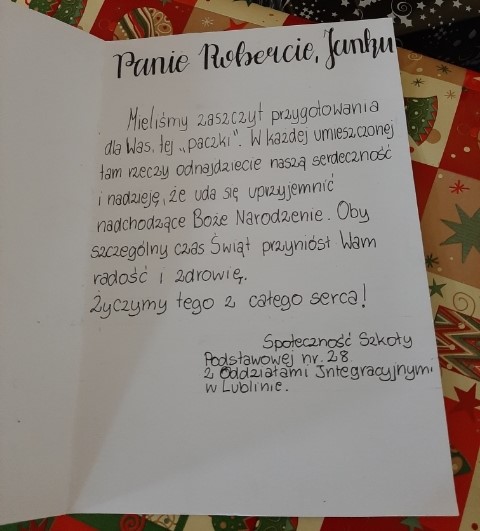 Panie Robercie, Janku
Mieliśmy zaszczyt przygotowania
dla Was, tej „paczki". W każdej umieszczonej
tam rzeczy odnajdziecie naszą serdeczność
i nadzieję, że uda się uprzyjemnić
nadchodzące Boże Narodzenie. Oby
szczególny czas Świąt przyniósł Wam
radość i zdrowię.
Życzymy tego z całego serca!
Społeczność Szkoły
Podstawowej nr. 28
z Oddziałami Integracyjnymi
w Lublinie.